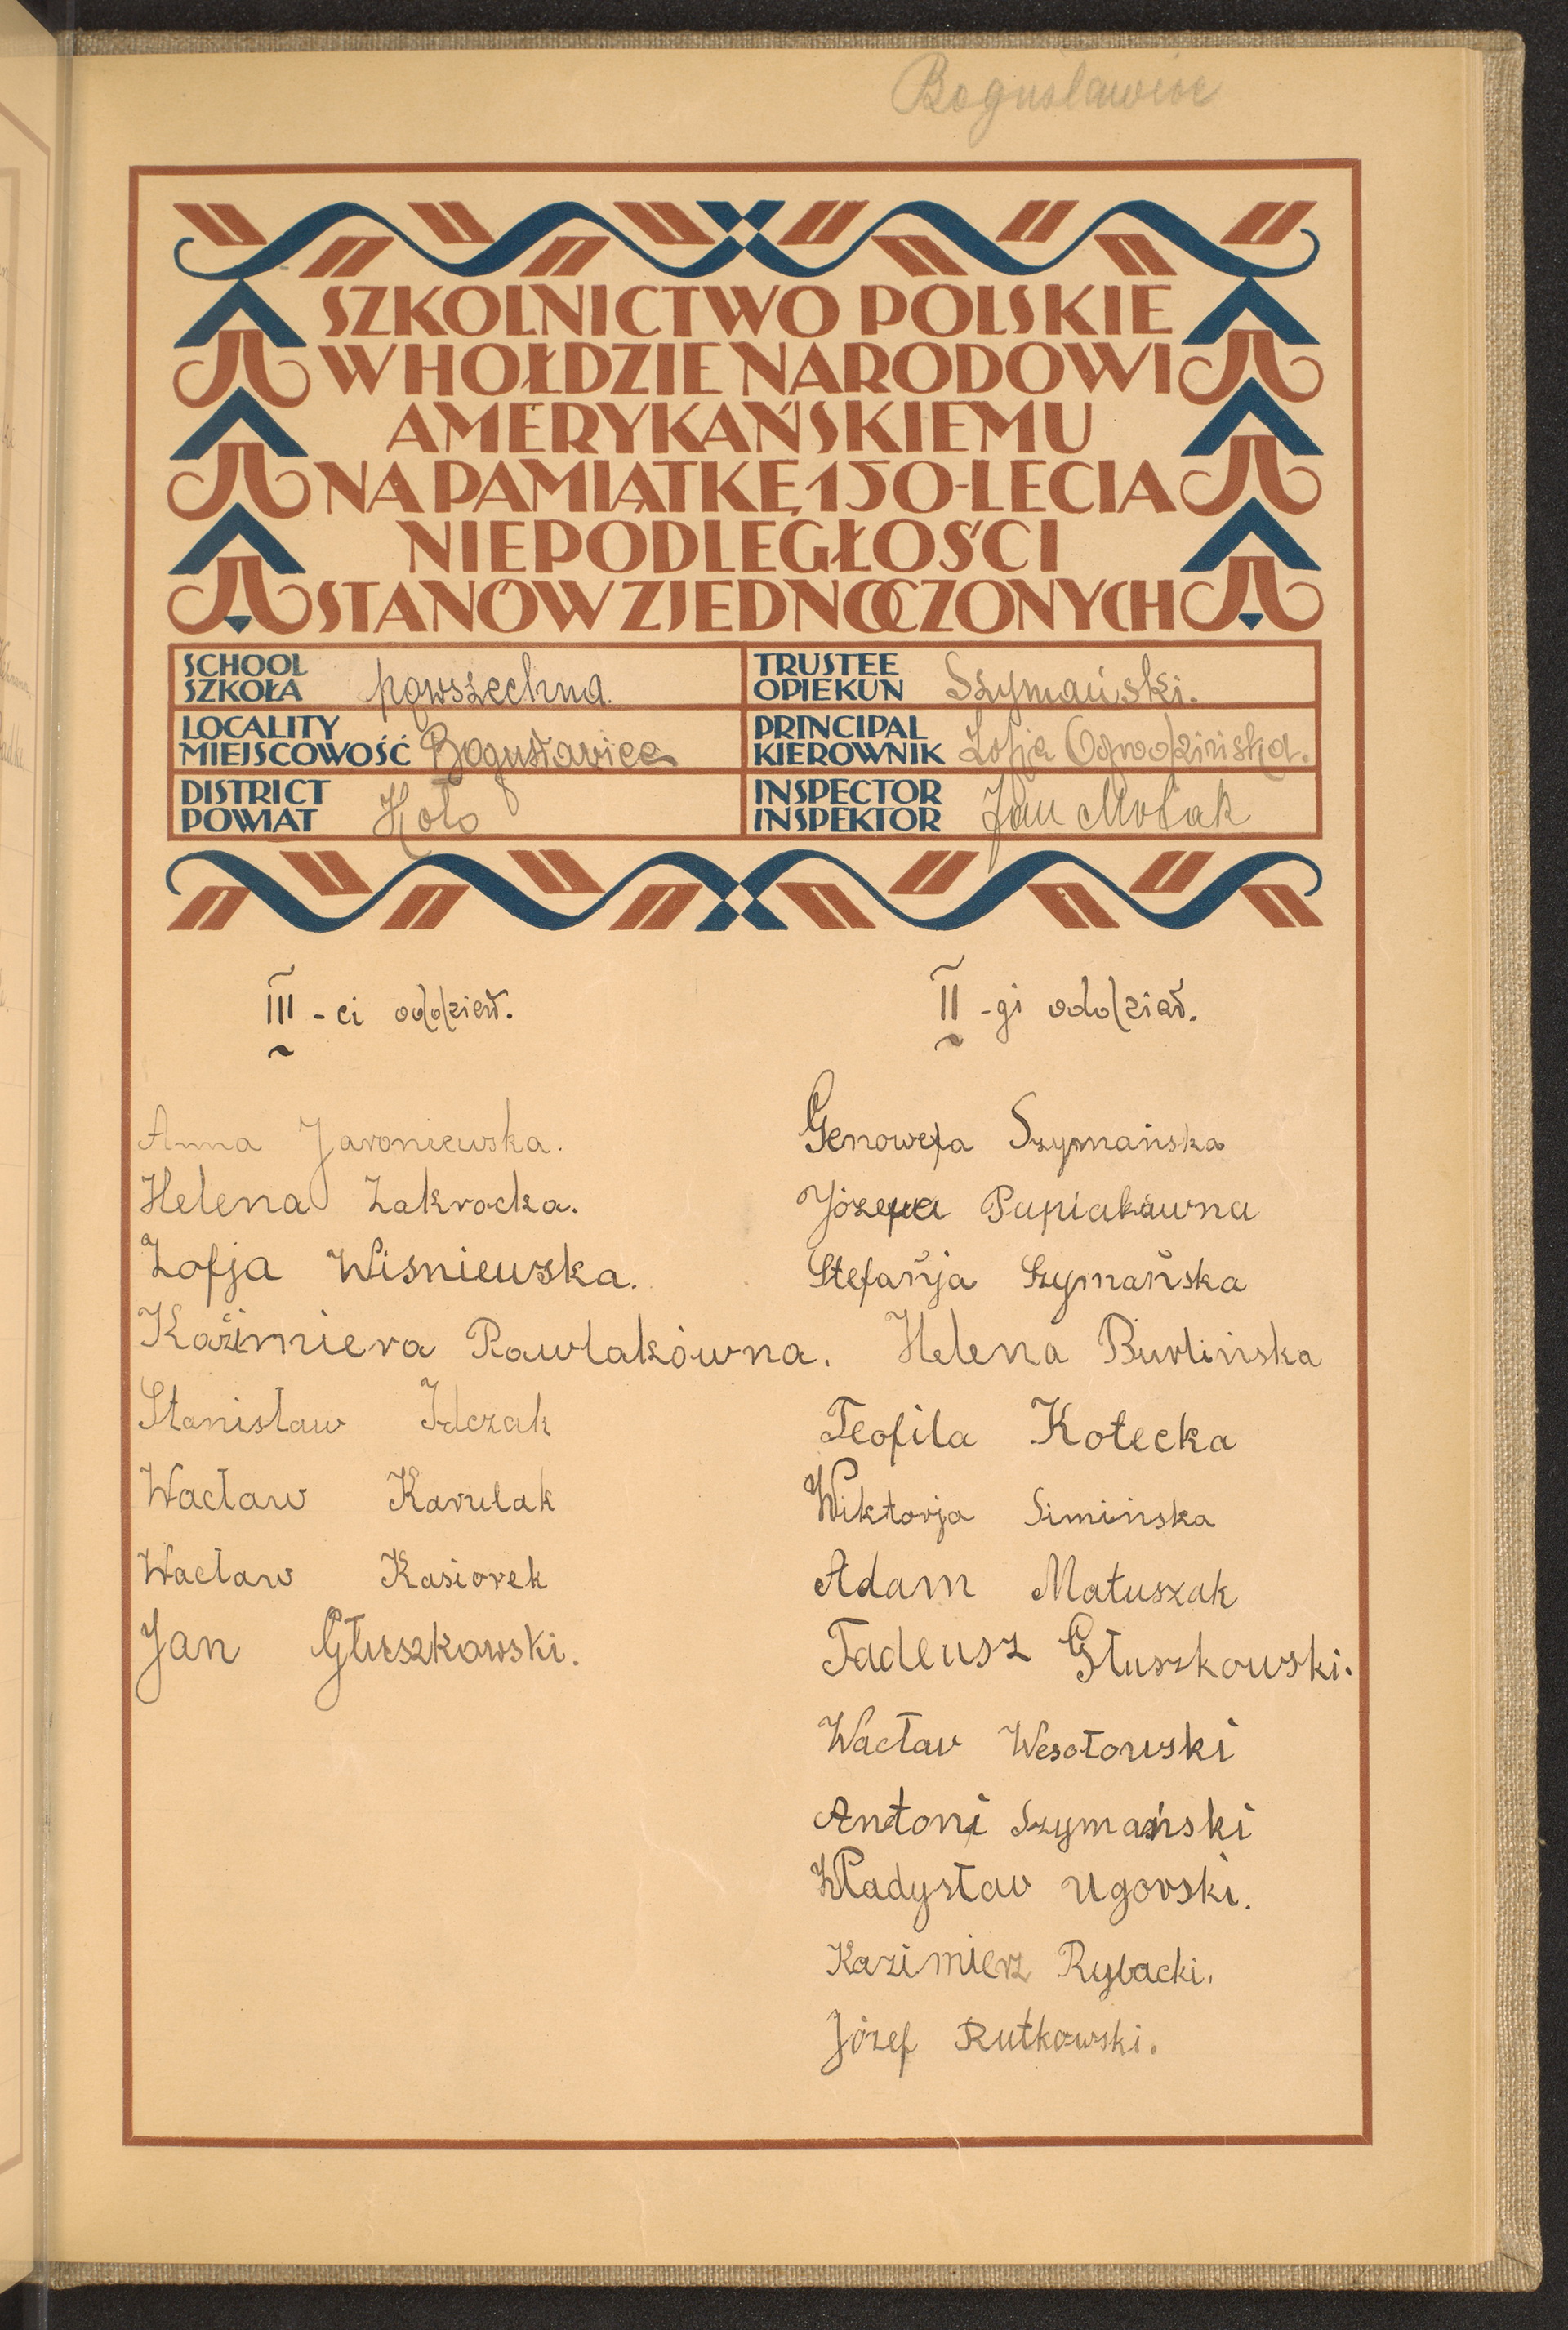 Bogusławice
SZKOLNICTWO POLSKIE
W HOŁDZIE NARODOWI
AMERYKAŃSKIEMU
NA PAMIĄTKĘ 150-LECIA
NIEPODLEGŁOŚCI
STANÓW ZJEDNOCZONYCH
SCHOOL
SZKOŁA powszechna.
TRUSTEE
OPIEKUN Szymański.
LOCALITY
MIEJSCOWOŚĆ Bogusławice
PRINCIPAL
KIEROWNIK Zofja Ogrodzińska.
DISTRICT
POWIAT Koło
INSPECTOR
INSPEKTOR Jan
III - ci oddział.
Anna Jaroniewska.
Helena Zakrocka.
Zofja Wisniewska.
Kaźimiera Pawlakówna.
Stanisław Idczak
Wacław Karulak
Wacław Kasiorek
Jan Głuszkowski.
II - gi oddział.
Genowefa Szymańska
Józefa Papiakówna
Stefańja Szymańska
Helena Burlińska
Teofila Kotecka
Wiktorja Simińska
Adam Matuszak
Tadeusz Głuszkowski.
Wacław Wesołowski
Antoni Szymański
Władysław Ugorski.
Kazimierz Rybacki.
Józef Rutkowski.